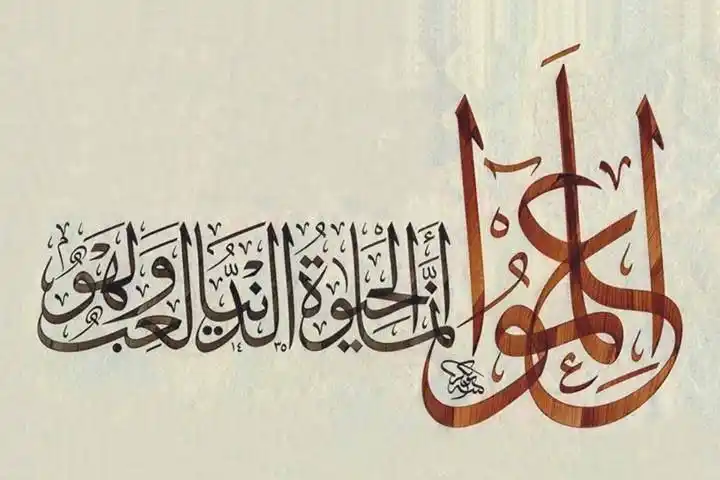 اعلموا أَنَّمَا الْحَيَوٰةُ الدُّنْيَا لَعِبٌ وَلَهْوٌ
١٤ ٣٥